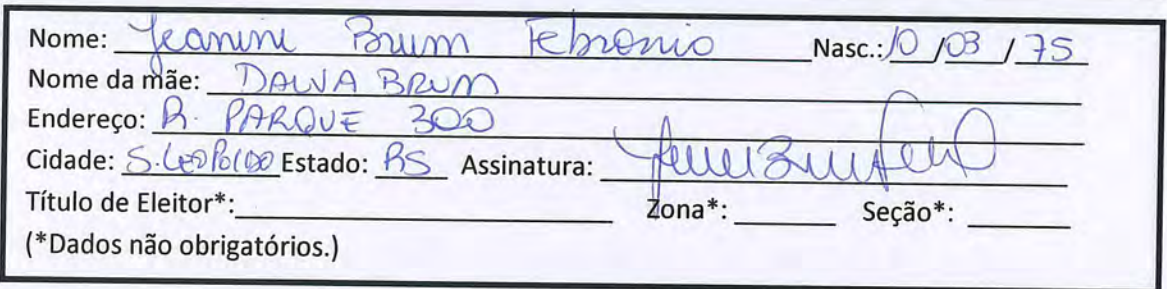 Nome: Jeanine Brum Febronio Nasc.: 10/03/75
Nome da mãe: DALVA BRUM
Endereço: R. PARQUE 300
Cidade: S. LEOPOLDO Estado: RS Assinatura:
Título de Eleitor*: Zona*: Seção*:
(*Dados não obrigatórios.)